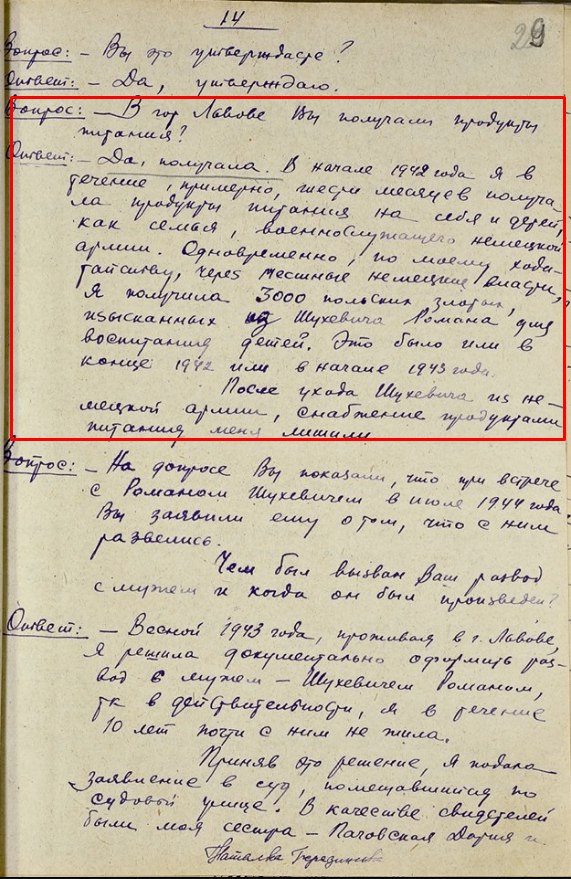 14
29
Вопрос: – Вы это утверждаете?
Ответ: – Да, утверждаю.
Вопрос: – В гор Львове Вы получали продукты
питания?
Ответ: – Да, получала. В начале 1942 года я в
течение, примерно, шести месяцев получа
ла продукты питания на себя и детей,
как семья, военнослужащего немецкой
армии. Одновременно, по моему хода-
тайству, через местные немецкие власти,
я получила 3000 польских злотых,
взысканных из Шухевича Романа, для
воспитания детей. Это было или в
конце 1942 или в начале 1943 года.
После ухода Шухевича из не-
мецкой армии, снабжение продуктами
питания меня лишили
Вопрос: – На допросе Вы показали, что при встрече
с Романом Шухевичем в июле 1944 года
Вы заявили ему о том, что с ним
развелись.
Чем был вызван Ваш развод
с мужем и когда он был произведен?
Ответ: – Весной 1943 года, проживая в г. Львове,
я решила документально оформить раз-
вод с мужем – Шухевичем Романом,
тк в действительности, я в течение
10 лет почти с ним не жила.
Приняв это решение, я подала
заявление в суд, помещавшийся по
судовой улице. В качестве свидетелей
были моя сестра – Пачовская Дария и
Наталья